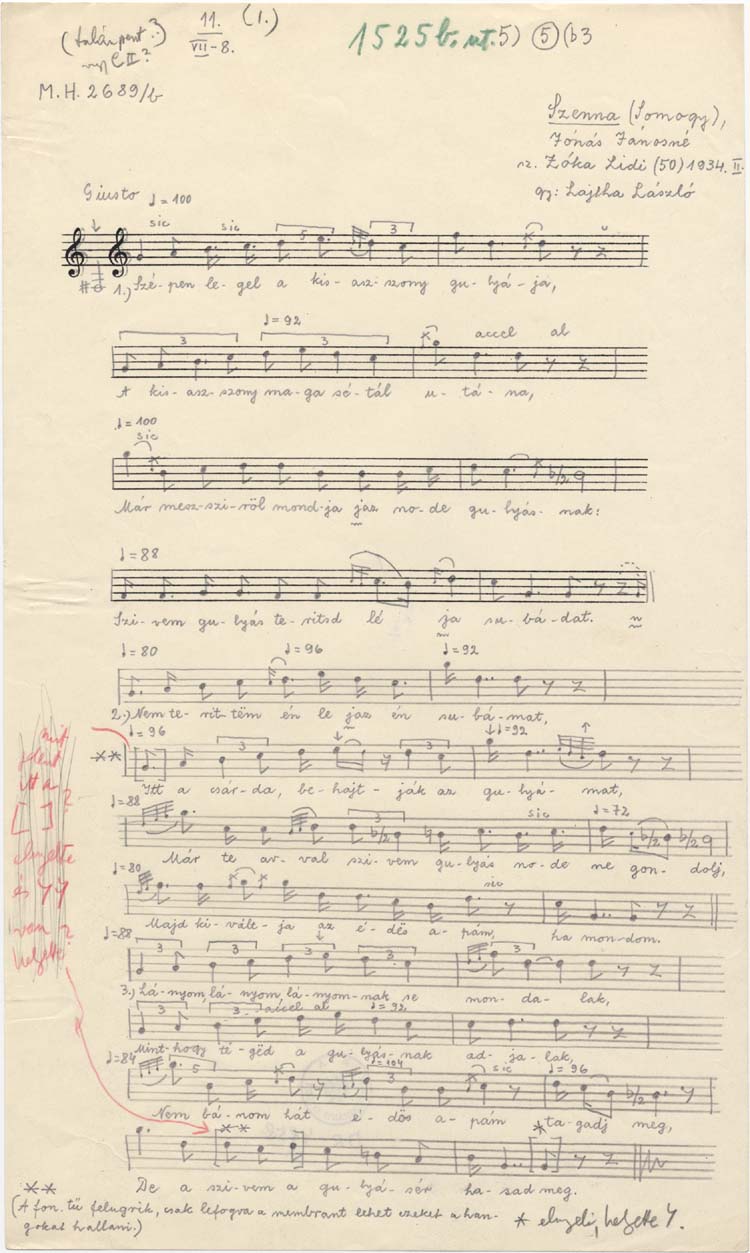 11. (1.)
VII-8.
1525b. ut. 5) (5) (b3
(talán pent.?)
vagy C II?
M.H. 2689/b
Szenna (Somogy),
Jónás Jánosné
sz. Zóka Lidi (50) 1934. II.
gy: Lajtha László
Giusto ♩= 100
sic sic 5 3
1.) Szé-pen le-gel a kis-asz-szony gu-lyá-ja,
♩= 92 accel al
3 3
A kis-asz-szony ma-ga sé-tál u-tá-na,
♩= 100
sic
Már mesz-szi-ről mond-ja jaz no-de gu-lyás-nak:
♩= 88
Szi-vem gu-lyás te-ritsd lé ja su-bá-dat.
♩= 80 ♩= 96 ♩= 92
2.) Nem te-rit-tëm én le jaz én su-bá-mat,
♩= 96 ♩= 92
** 3 3
Itt a csár-da, be-hajt-ják az gu-lyá-mat,
♩= 88 3 sic ♩= 72
Már te ar-val szi-vem gu-lyás no-de ne gon-dolj,
♩= 80 sic
Majd ki-vált-ja az é-dös a-pám, ha mondom.
♩= 88 3 3 3 3 3
3.) Lá-nyom, lá-nyom, lá-nyom-nak se mon-da-lak,
3 3 accel al ♩= 92
Mint-hogy té-gëd a gu-lyás-nak ad-ja-lak,
♩= 84 5 3 ♩= 104 sic ♩= 96
Nem bá-nom hát é-dös a-pám *ta-gadj meg,
**
De a szi-vem a gu-lyá-sér ha-sad meg.
mit
jelent
itt a
[ ] ?
elnyelte
és γγ
van
helyette
**
(A fon. tű felugrik, csak lefogva a membrant lehet ezeket a han-
gokat hallani.)
* elnyeli, helyette γ.